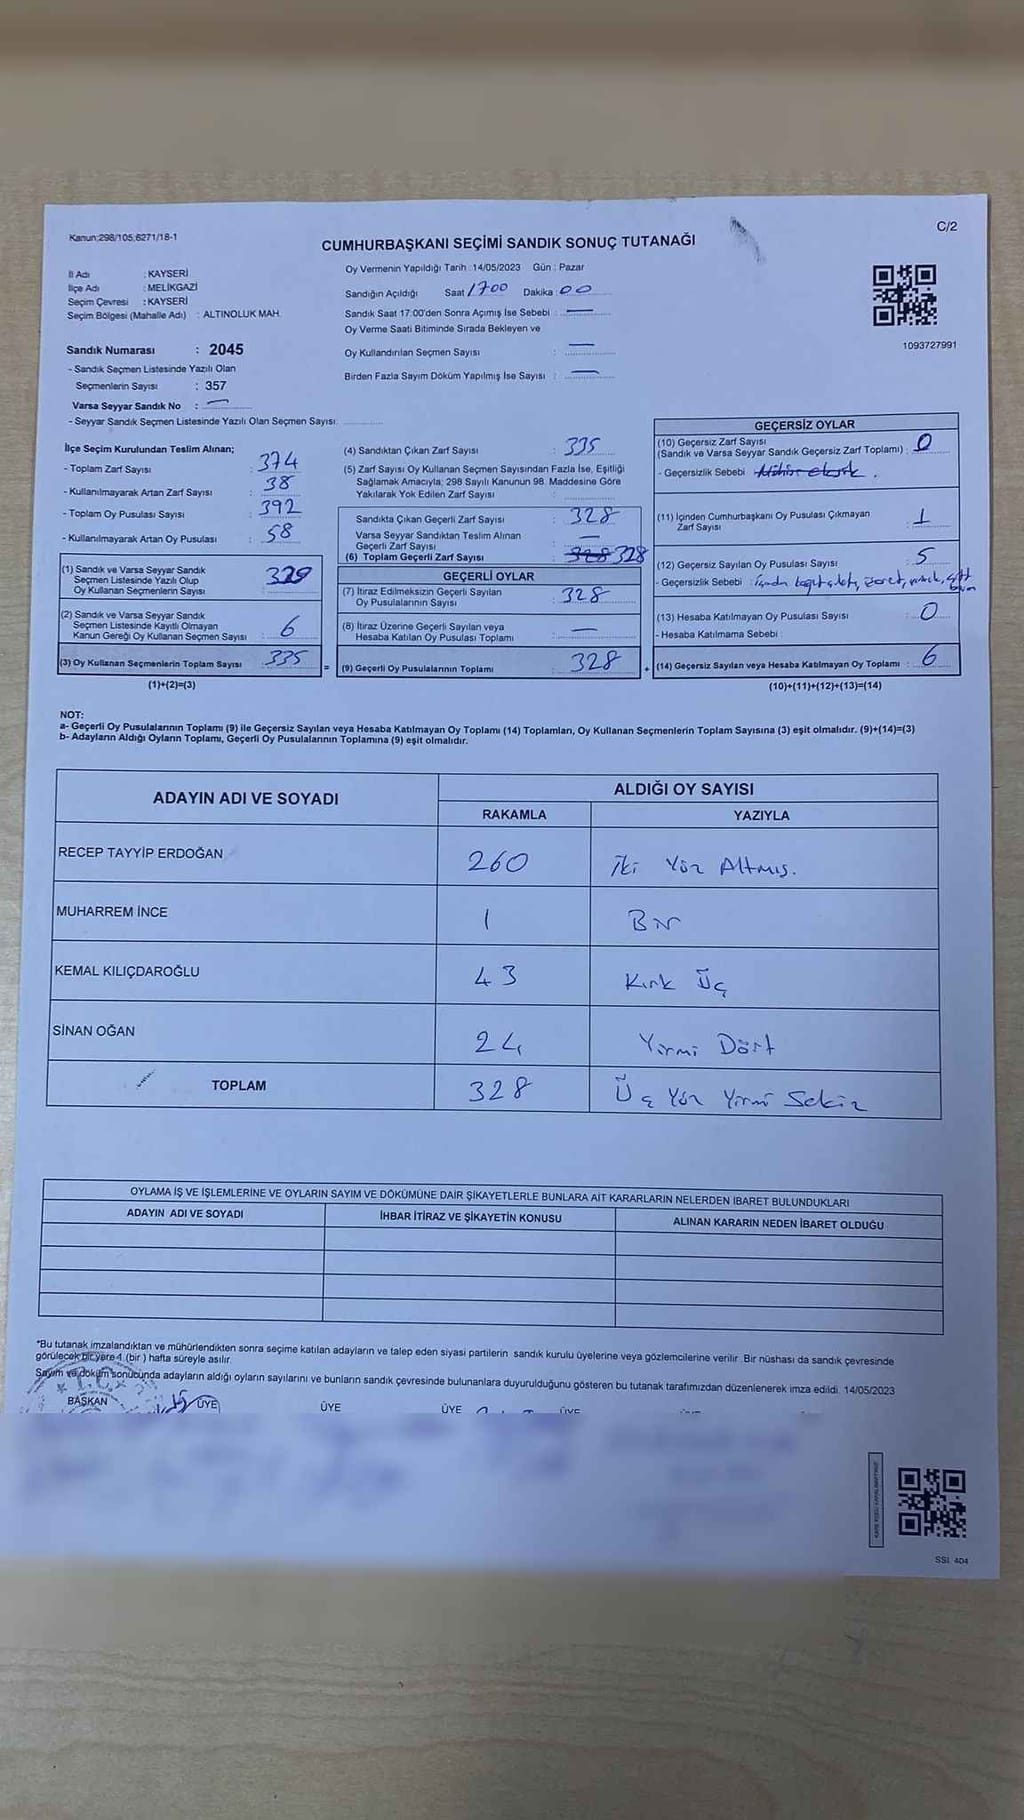 Kanun:298/105,6271/18-1
C/2
CUMHURBAŞKANI SEÇİMİ SANDIK SONUÇ TUTANAĞI
İl Adı : KAYSERİ
İlçe Adı : MELİKGAZİ
Seçim Çevresi : KAYSERİ
Seçim Bölgesi (Mahalle Adı) : ALTINOLUK MAH.
Sandık Numarası : 2045
- Sandık Seçmen Listesinde Yazılı Olan
Seçmenlerin Sayısı : 357
Varsa Seyyar Sandık No : —
- Seyyar Sandık Seçmen Listesinde Yazılı Olan Seçmen Sayısı:
Oy Vermenin Yapıldığı Tarih :14/05/2023 Gün : Pazar
Sandığın Açıldığı Saat 1700 Dakika : 00
Sandık Saat 17.00'den Sonra Açımış İse Sebebi : —
Oy Verme Saati Bitiminde Sırada Bekleyen ve
Oy Kullandırılan Seçmen Sayısı : —
Birden Fazla Sayım Döküm Yapılmış İse Sayısı : —
1093727991
İlçe Seçim Kurulundan Teslim Alınan;
- Toplam Zarf Sayısı : 374
- Kullanılmayarak Artan Zarf Sayısı : 38
- Toplam Oy Pusulası Sayısı : 392
- Kullanılmayarak Artan Oy Pusulası : 58
(1) Sandık ve Varsa Seyyar Sandık
Seçmen Listesinde Yazılı Olup
Oy Kullanan Seçmenlerin Sayısı : 329
(2) Sandık ve Varsa Seyyar Sandık
Seçmen Listesinde Kayıtlı Olmayan
Kanun Gereği Oy Kullanan Seçmen Sayısı : 6
(3) Oy Kullanan Seçmenlerin Toplam Sayısı : 335
(1)+(2)=(3)
(4) Sandıktan Çıkan Zarf Sayısı : 335
(5) Zarf Sayısı Oy Kullanan Seçmen Sayısından Fazla İse, Eşitliği
Sağlamak Amacıyla; 298 Sayılı Kanunun 98. Maddesine Göre
Yakılarak Yok Edilen Zarf Sayısı :
Sandıkta Çıkan Geçerli Zarf Sayısı : 328
Varsa Seyyar Sandıktan Teslim Alınan
Geçerli Zarf Sayısı
(6) Toplam Geçerli Zarf Sayısı : 328 328
GEÇERLİ OYLAR
(7) İtiraz Edilmeksizin Geçerli Sayılan
Oy Pusulalarının Sayısı : 328
(8) İtiraz Üzerine Geçerli Sayılan veya
Hesaba Katılan Oy Pusulası Toplamı : —
= (9) Geçerli Oy Pusulalarının Toplamı : 328
GEÇERSİZ OYLAR
(10) Geçersiz Zarf Sayısı
(Sandık ve Varsa Seyyar Sandık Geçersiz Zarf Toplamı) : 0
- Geçersizlik Sebebi
(11) İçinden Cumhurbaşkanı Oy Pusulası Çıkmayan
Zarf Sayısı : 1
(12) Geçersiz Sayılan Oy Pusulası Sayısı : 5
- Geçersizlik Sebebi :
(13) Hesaba Katılmayan Oy Pusulası Sayısı : 0
- Hesaba Katılmama Sebebi :
+ (14) Geçersiz Sayılan veya Hesaba Katılmayan Oy Toplamı : 6
(10)+(11)+(12)+(13)=(14)
NOT:
a- Geçerli Oy Pusulalarının Toplamı (9) ile Geçersiz Sayılan veya Hesaba Katılmayan Oy Toplamı (14) Toplamları, Oy Kullanan Seçmenlerin Toplam Sayısına (3) eşit olmalıdır. (9)+(14)=(3)
b- Adayların Aldığı Oyların Toplamı, Geçerli Oy Pusulalarının Toplamına (9) eşit olmalıdır.
ADAYIN ADI VE SOYADI
ALDIĞI OY SAYISI
RAKAMLA YAZIYLA
RECEP TAYYİP ERDOĞAN 260 İki Yüz Altmış.
MUHARREM İNCE 1 Bir
KEMAL KILIÇDAROĞLU 43 Kırk Üç
SİNAN OĞAN 24 Yirmi Dört
TOPLAM 328 Üç Yüz Yirmi Sekiz
OYLAMA İŞ VE İŞLEMLERİNE VE OYLARIN SAYIM VE DÖKÜMÜNE DAİR ŞİKAYETLERLE BUNLARA AİT KARARLARIN NELERDEN İBARET BULUNDUKLARI
ADAYIN ADI VE SOYADI İHBAR İTİRAZ VE ŞİKAYETİN KONUSU ALINAN KARARIN NEDEN İBARET OLDUĞU
*Bu tutanak imzalandıktan ve mühürlendikten sonra seçime katılan adayların ve talep eden siyasi partilerin sandık kurulu üyelerine veya gözlemcilerine verilir. Bir nüshası da sandık çevresinde
görülecek bir yere 1 (bir ) hafta süreyle asılır.
Sayım ve döküm sonucunda adayların aldığı oyların sayılarını ve bunların sandık çevresinde bulunanlara duyurulduğunu gösteren bu tutanak tarafımızdan düzenlenerek imza edildi. 14/05/2023
T.C.
BAŞKAN ÜYE ÜYE ÜYE ÜYE
SSI: 404